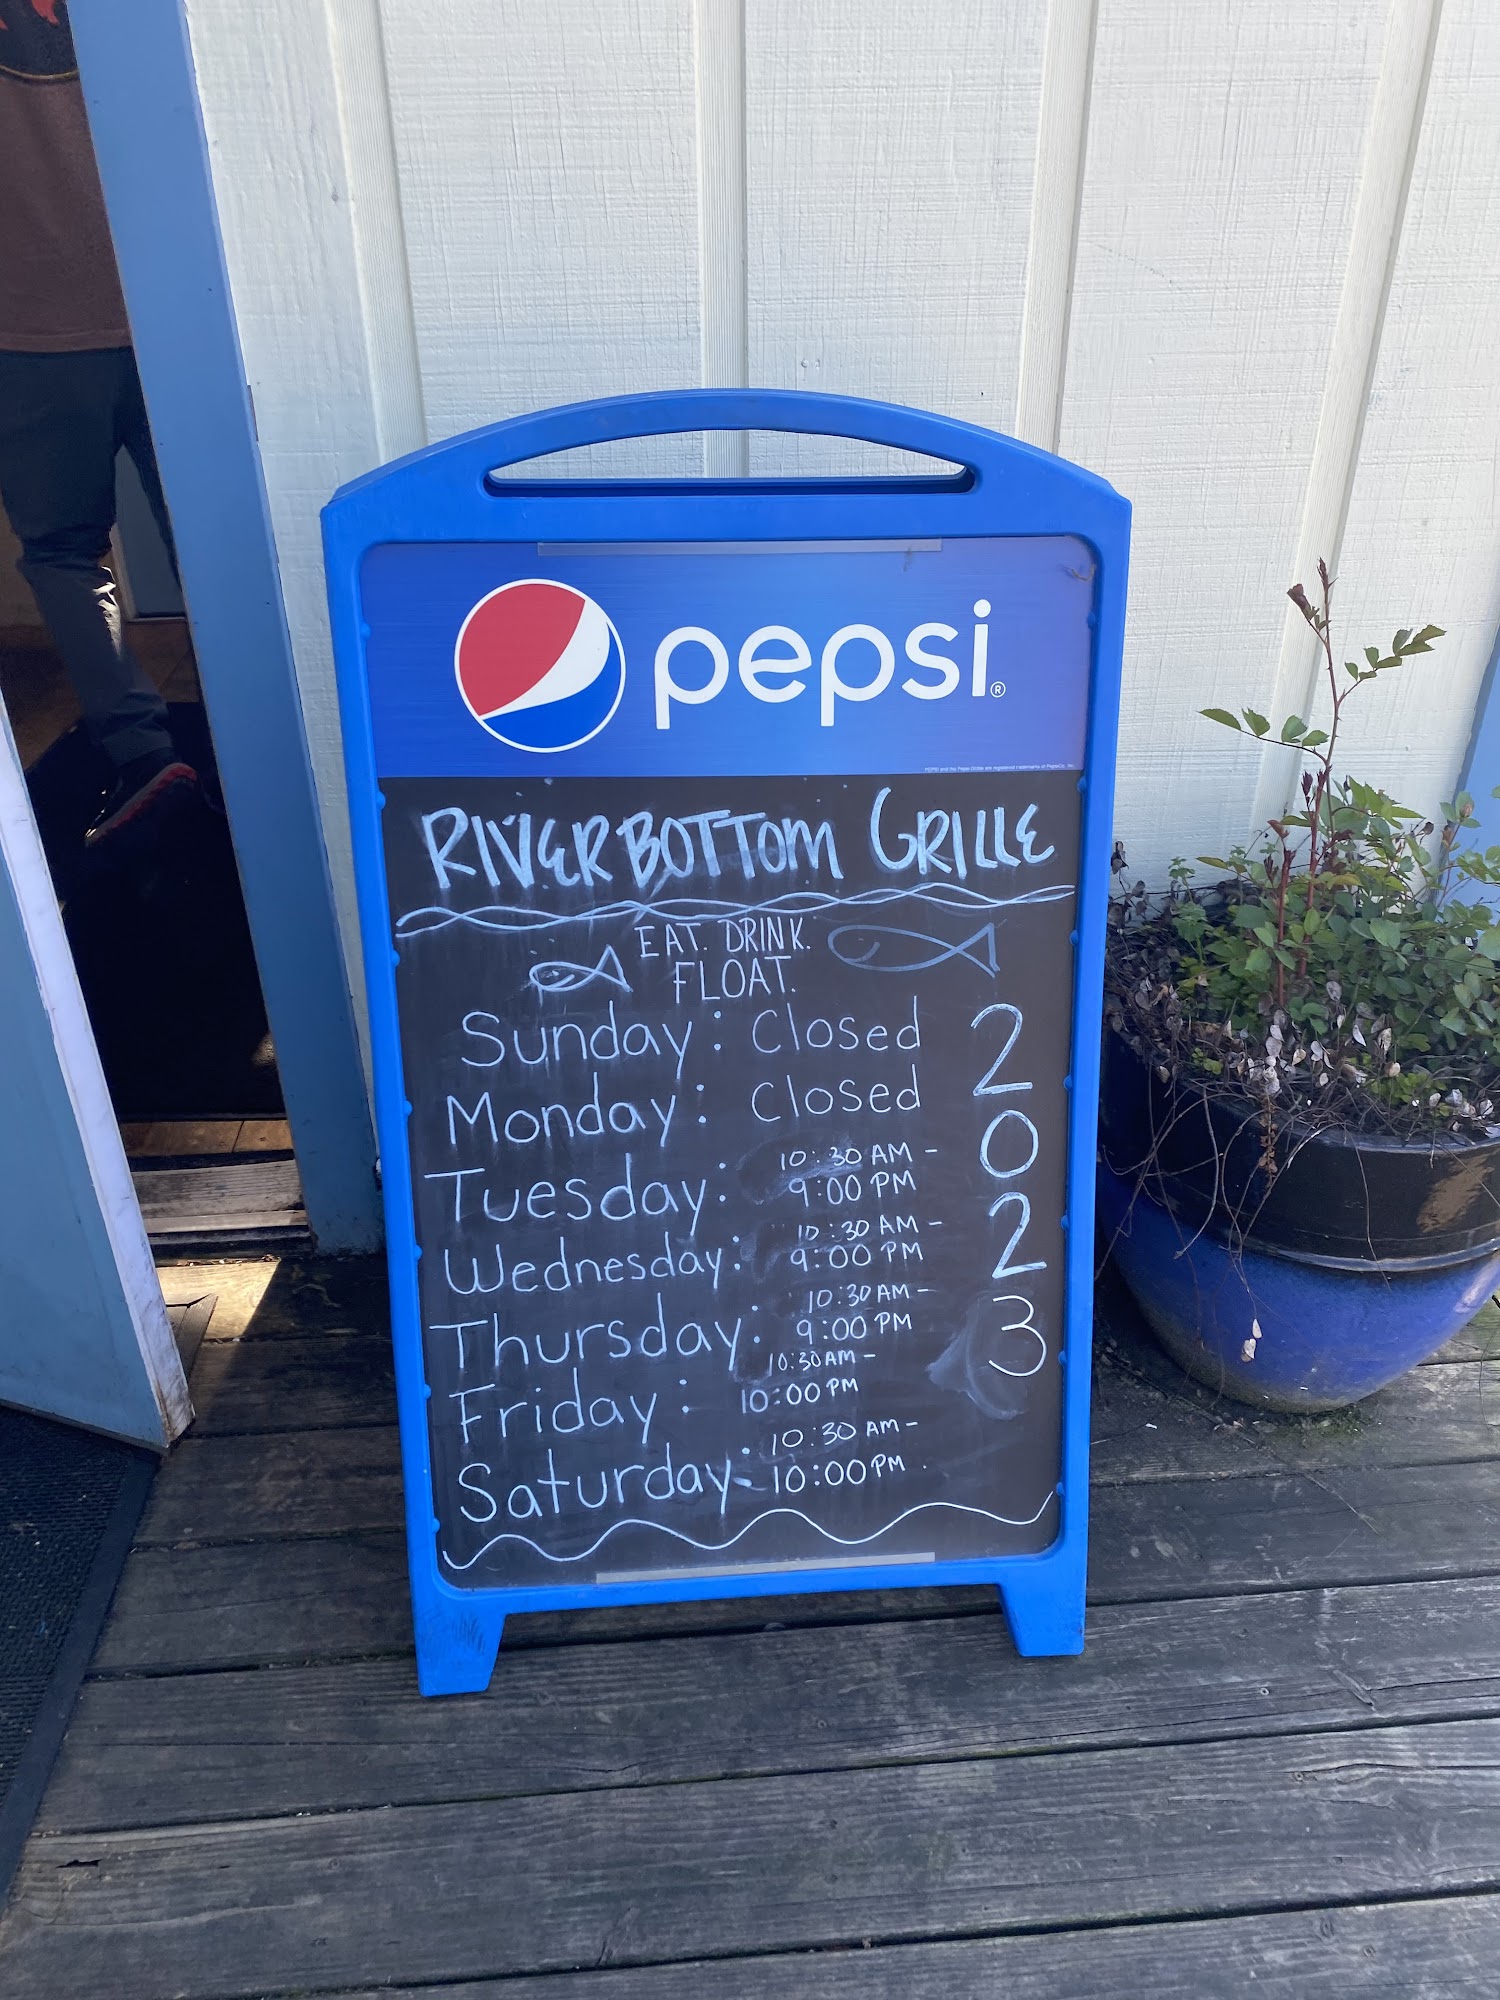 pepsi®
RIVERBOTTOM GRILLE
EAT. DRINK.
FLOAT.
Sunday: Closed
Monday: Closed
Tuesday: 10:30 AM -
9:00 PM
Wednesday: 10:30 AM -
9:00 PM
Thursday: 10:30 AM -
9:00 PM
Friday: 10:30 AM -
10:00 PM
Saturday: 10:30 AM -
10:00 PM.
2
0
2
3